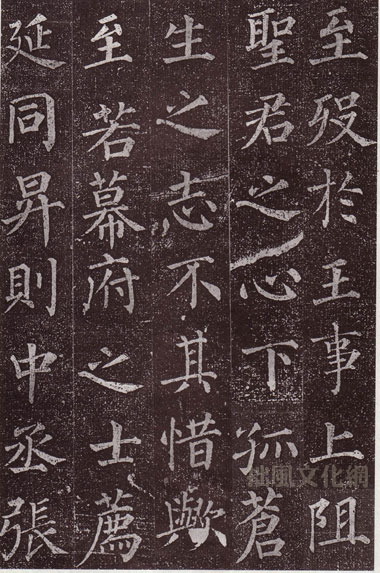 至歿於王事上阻
聖君之心下孤蒼
生之志不其惜歟
至若幕府之士薦
延同昇則中丞張
拙風文化網